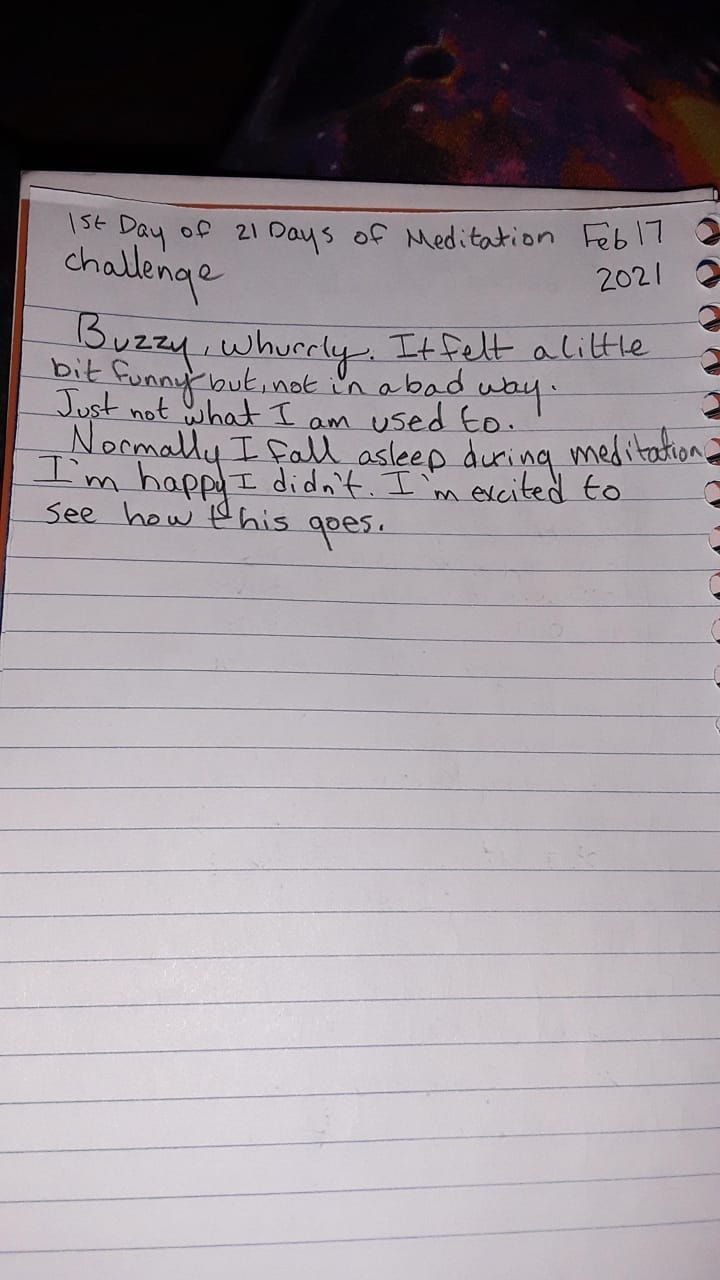 1st Day of 21 Days of Meditation Feb 17
challenge 2021
Buzzy, whurrly. It felt a little
bit funny but, not in a bad way.
Just not what I am used to.
Normally I fall asleep during meditation
I'm happy I didn't. I'm excited to
see how this goes.